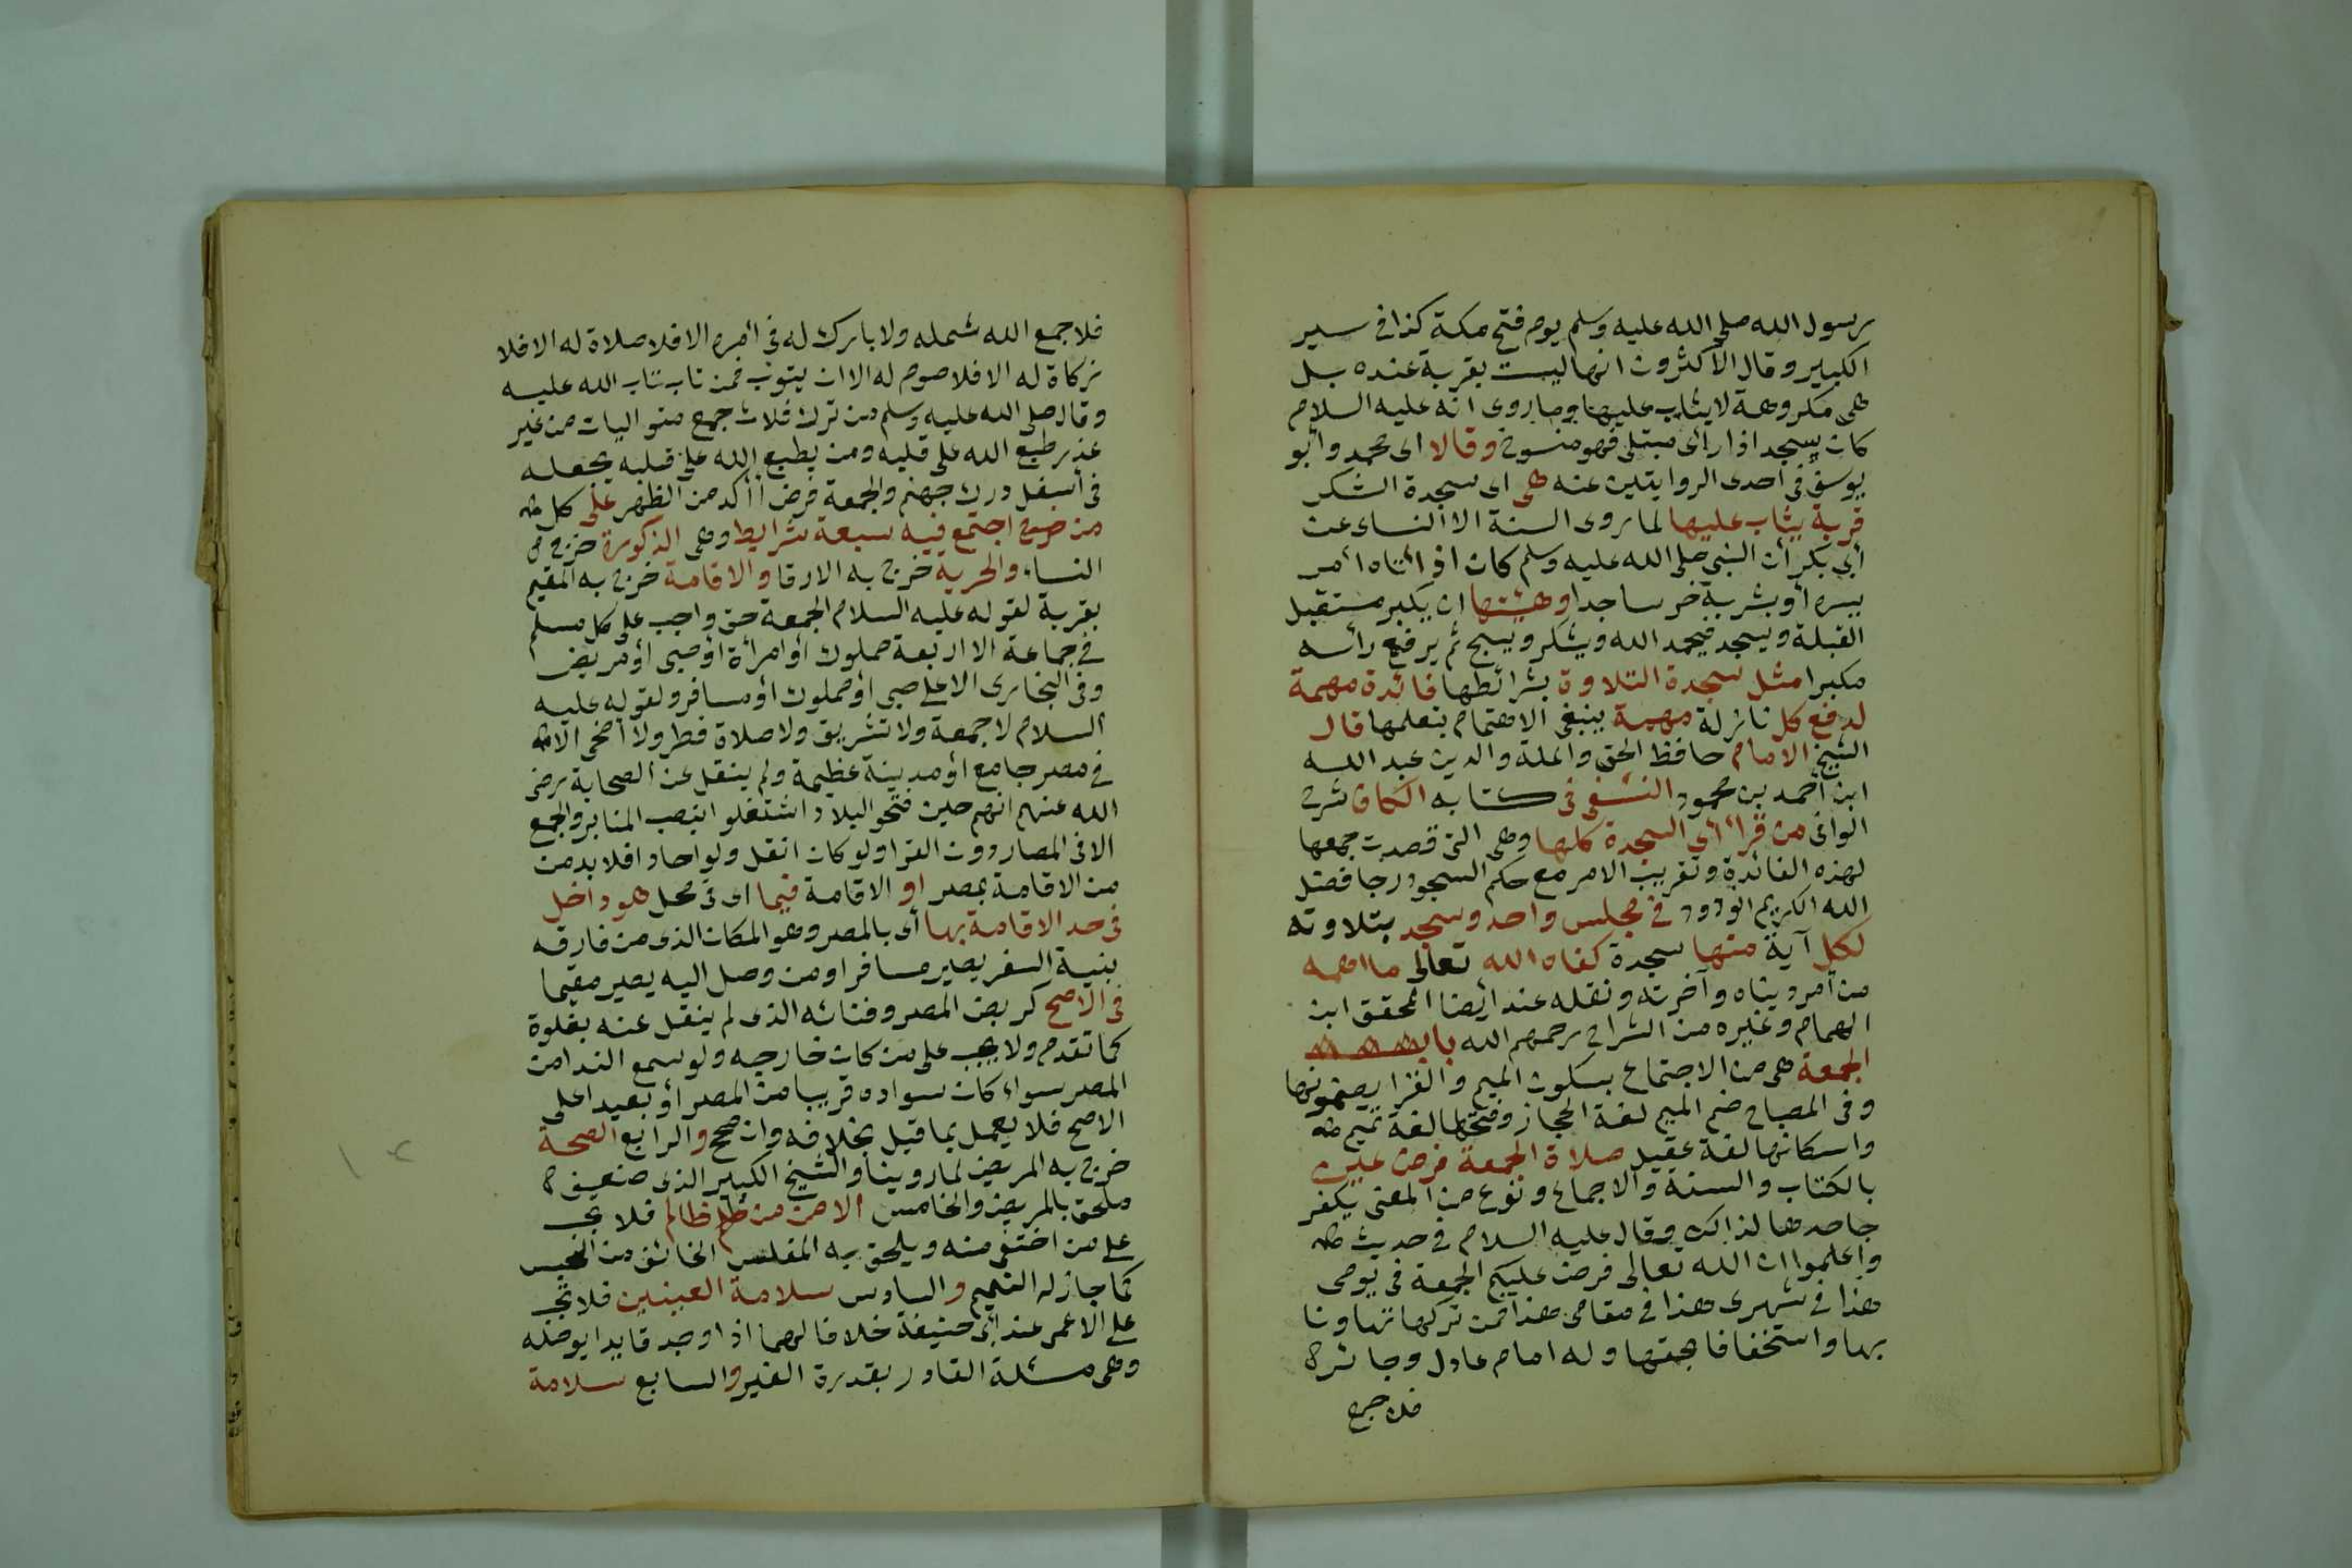 رسول الله صلى الله عليه وسلم يوم فتح مكة كذا في سير
الكبير وقال الاكثرون انها ليست بقربة عنده بل
هى مكروهة لا يثاب عليها وما روى انه عليه السلام
كان يسجد اذا رأى مبتلى فهو منسوخ وقالا اى محمد وأبو
يوسف فى احدى الروايتين عنه هى اى سجدة الشكر
قربة يثاب عليها لما روى الستة الا النساى عن
أبى بكر أن النبى صلى الله عليه وسلم كان اذا أتاه أمر
يسره أو بشر به خر ساجدا وهيئتها ان يكبر مستقبل
القبلة ويسجد فيحمد الله ويشكر ويسبح ثم يرفع رأسه
مكبرا مثل سجدة التلاوة بشرائطها فائدة مهمة
لدفع كل نازلة مهمة ينبغى الاهتمام بتعلمها قال
الشيخ الامام حافظ الحق والملة والدين عبد الله
ابن أحمد بن محمود النسفى فى كتابه الكافى شرح
الوافى من قرأ آى السجدة كلها وهى التى قصدت جمعها
لهذه الفائدة وتقريب الامر مع حكم السجود رجا فضل
الله الكريم الودود فى مجلس واحد وسجد بتلاوته
لكل آية منها سجدة كفاه الله تعالى ما اهمه
من أمر دنياه وآخرته ونقله عنه أيضا المحقق ابن
الهمام وغيره من الشراح رحمهم الله باب
الجمعة هى من الاجتماع بسكون الميم والقرا يضمونها
وفى المصباح ضم الميم لغة الحجاز وفتحها لغة تميم
واسكانها لغة عقيل صلاة الجمعة فرض عين
بالكتاب والسنة والاجماع ونوع من المعنى يكفر
جاحدها لذالك وقال عليه السلام فى حديث
واعلموا ان الله تعالى فرض عليكم الجمعة فى يومى
هذا فى شهرى هذا فى مقامى هذا فمن تركها تهاونا
بها واستخفافا بحقها وله امام عادل وجائر
فلا جمع
فلا جمع الله شمله ولا بارك له فى أمره الا فلا صلاة له الا فلا
زكاة له الا فلا صوم له الا ان يتوب فمن تاب تاب الله عليه
وقال صلى الله عليه وسلم من ترك ثلاث جمع متواليات من غير
عذر طبع الله على قلبه ومن يطبع الله على قلبه يجعله
فى أسفل درك جهنم والجمعة فرض أأكد من الظهر على كل
من اجتمع فيه سبعة شرايط وهى الذكورة خرج
النساء والحرية خرج به الارقا والاقامة خرج به المقيم
بقرية لقوله عليه السلام الجمعة حق واجب على كل مسلم
فى جماعة الا اربعة مملوك أو امرأة أو صبى أو مريض
وفى البخارى الا على صبى أو مملوك أو مسافر ولقوله عليه
السلام لا جمعة ولا تشريق ولا صلاة فطر ولا أضحى الا
فى مصر جامع أو مدينة عظيمة ولم ينقل عن الصحابة رضى
الله عنهم انهم حين فتحو البلاد اشتغلو ابنصب المنابر والجمع
الا فى المصار دون القرا ولو كان انقل ولو احادا فلا بد من
من الاقامة بمصر او الاقامة فيما اى فى محل هو داخل
فى حد الاقامة بها أى بالمصر وهو المكان الذى من فارقه
بنية السفر يصير مسافرا ومن وصل اليه يصير مقيما
فى الاصح كربض المصر وفنائه الذى لم ينفصل عنه بغلوة
كما تقدم ولا يجب على من كان خارجه ولو سمع الندا من
المصر سواء كان سواده قريبا من المصر أو بعيدا على
الاصح فلا يعمل بما قيل بخلافه وان صحح والرابع الصحة
خرج به المريض لما روينا والشيخ الكبير الذى ضعف
ملحق بالمريض والخامس الامن من ظلم ظالم فلا يجب
على من اختفى منه ويلحق به المفلس الخائف من الحبس
كما جاز له التيمم والسادس سلامة العينين فلا تجب
على الاعمى عند أبى حنيفة خلافا لهما اذا وجد قايدا يوصله
وهى مسئلة القادر بقدرة الغير والسابع سلامة